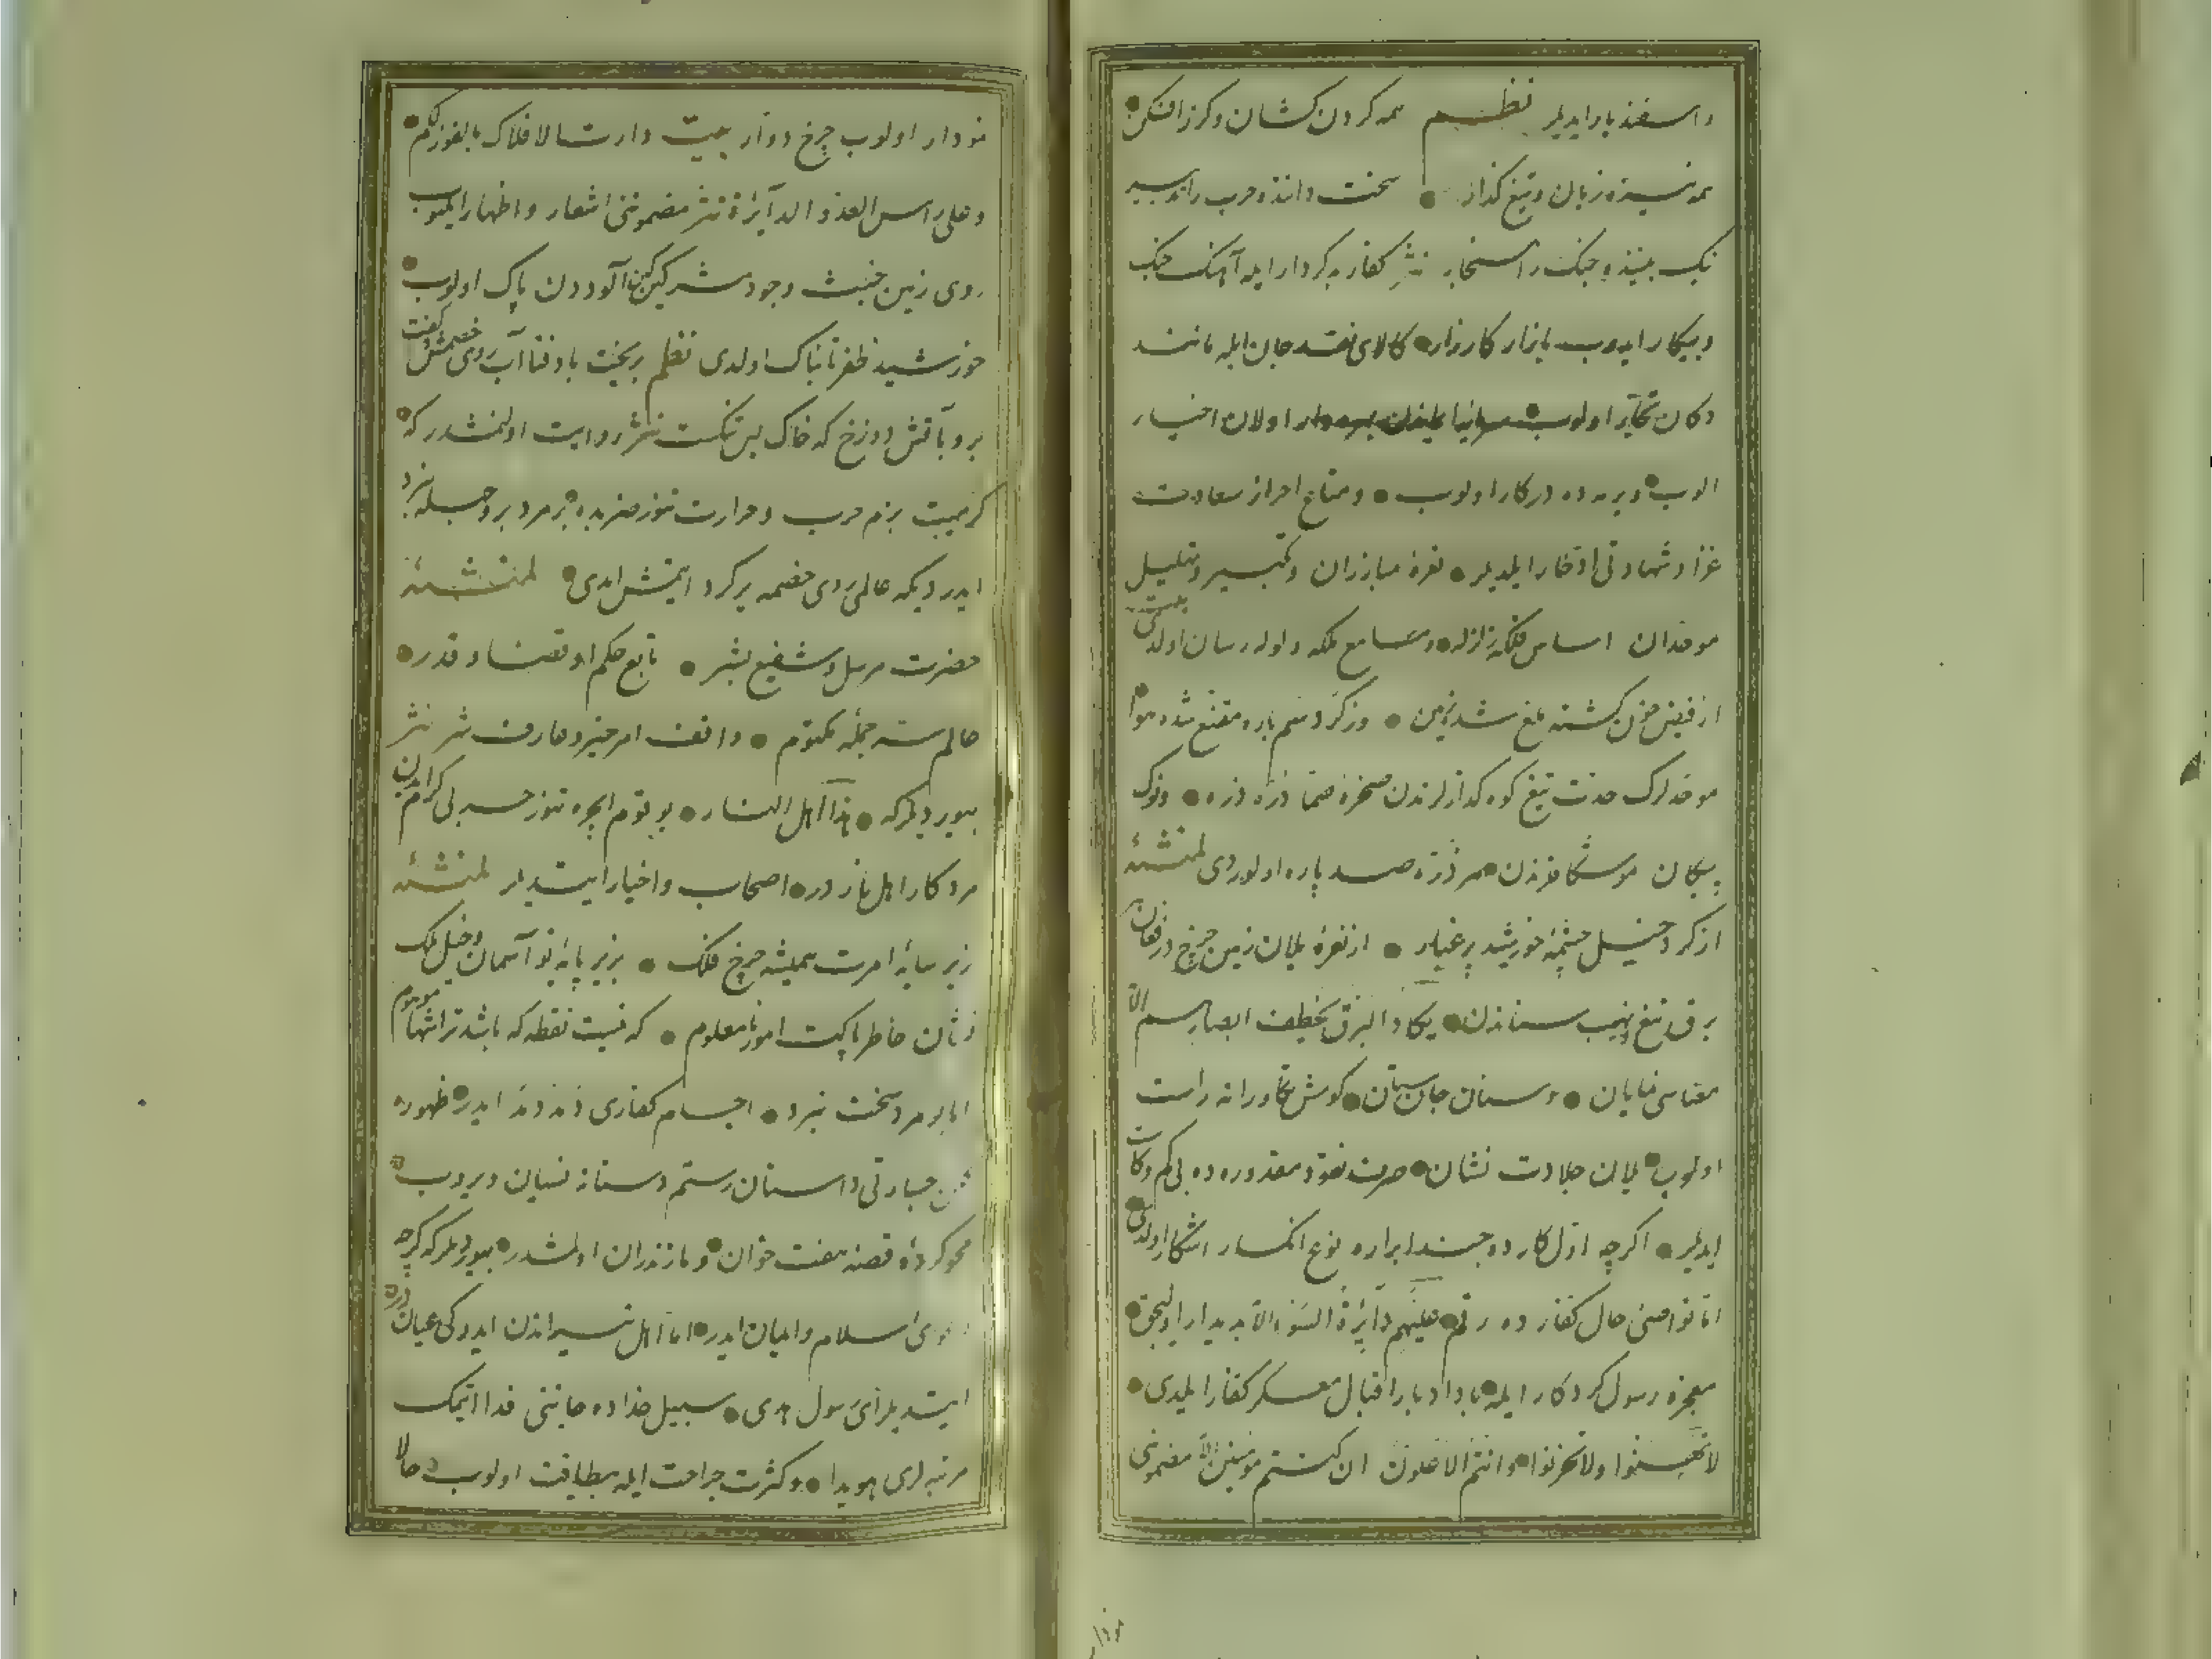 واسفندیار ایدیلر نظم همه کردن کشان و کرز افکن
همه نیزه زبان و تیغ کذار سخت دانند و حرب را تدبیر
نیک بینند و جنک را هنجار نثر کفار بدکردار ایله آهنک جنک
و پیکار ایدوب بازار کارزار کالای نقد جان ایله مانند
دکان اولوب اولان اخیار
الوب ویرمه ده درکار اولوب و متاع احراز سعادت
غزا و شهادتی ادخار ایلدیلر نعره مبارزان و تکبیر و تهلیل
موحدان اساس فلکه زلزله و مسامع ملکه ولوله رسان اولدی بیت
از فیض خون کشته شد زمین وز کرد سم باره مقنع شده هوا
موحدلرک حدت تیغ کوه کدازلرندن صخره صما ذره ذره ونوک
پیکان موشکافندن هر ذره صد پاره اولوردی لمنشئه
از کرد خیل چشمه خورشید پر غبار از نعره یلان زمین چرخ در فغان
برق تیغ نهیب ستاندن یکاد البرق یخطف ابصارهم الآ
معناسی نمایان و سنان جان ستان کوش دلاورانه راست
اولوب یلان جلادت نشان صرف نقود مقدوره ده بی کم وکاست
ایدیلر اکرچه اول کارده جند ابراره نوع انکسار اشکار اولدی
اما نواصئ حال کفارده رقم علیهم دآئرة السوء الآ بدیدار اولیجق
معجزه رسول کردکار ایله باد ادبار اقبال معسکر کفار ایلدی
لا تهنوا ولا تحزنوا وانتم الاعلون ان کنتم مؤمنین الآ مضمونی
نمودار
نمودار اولوب چرخ دوار بیت دارت الافلاک بالفوز لکم
وعلی راس العدو الدآئرة نثر مضموننی اشعار و اظهار ایلیوب
روی زمین خبث وجود مشرکین آلوددن پاک اولوب
خورشید ظفر تابناک اولدی نظم بریخت باد فنا آب روی خصمش کفت
برو بآتش دوزخ که خاک بر سرت نثر روایت اولنمشدر که
کرمیت بزم حرب و حرارت تنور ضربده بر مرد بر وجهله نبرد
ایدردیکه عالمی روی خصمه پر کرد ایتمش ایدی لمنشئه
حضرت مرسل و شفیع بشر تابع حکم او قضا و قدر
عالم جمله مکتوم واقف امر خیر و عارف شر نثر
بیوردیلرکه هذا اهل النار بو قوم ایچره تنور حربی کرم ایدن
مرد کار اهل نار در اصحاب واخیار ایتدیلر لمنشئه
زیر سایه امرت همیشه چرخ فلک بزیر پایه تو آسمان و خیل ملک
ز شان خاطر پاکت امور نامعلوم که نیست نقطه که باشد ترا نهان موهوم
اما بو مرد سخت نبرد اجسام کفاری ایدر ظهوره
جسارتی داستان رستم دستانه نسیان ویروب
محو کرده قصه هفت خوان و مازندران اولمشدر بیوردیلرکه اکرچه
دعوئ اسلام و ایمان ایدر اما اهل نیراندن ایدوکی عیان در
ایتدیلر ای رسول هدی سبیل خداده جاننی فدا ایتمک
مرتبه لری هویدا و کثرت جراحت ایله بیطاقت اولوب حالا